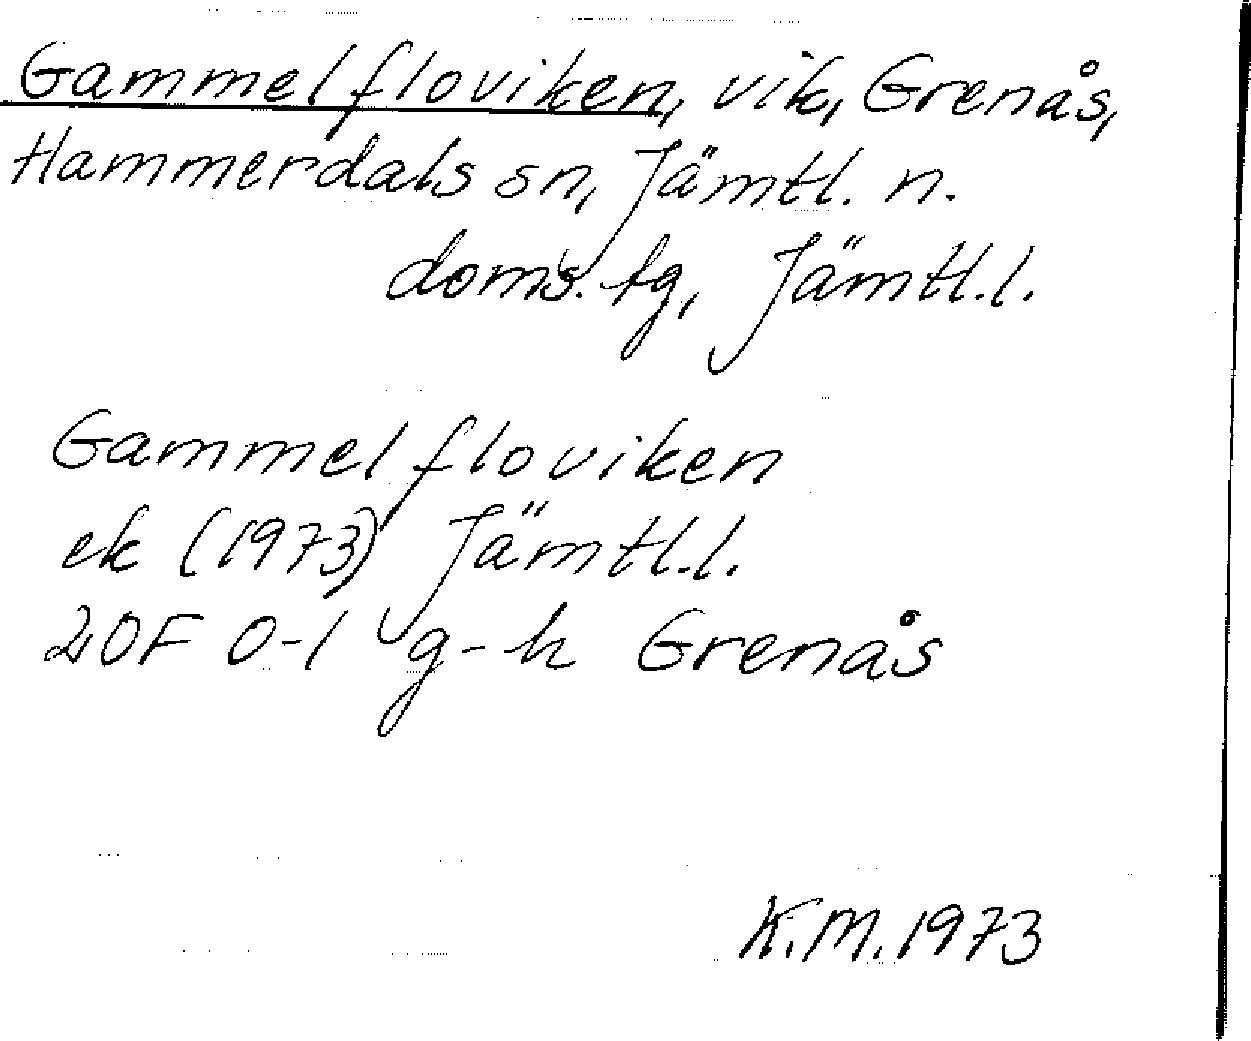 Gammelfloviken, vik, Grenås,
Hammerdals sn, Jämtl. n.
doms. tg, Jämtl.l.
Gammelfloviken
ek (1973) Jämtl.l.
20F 0-1 g-h Grenås
K.M. 1973